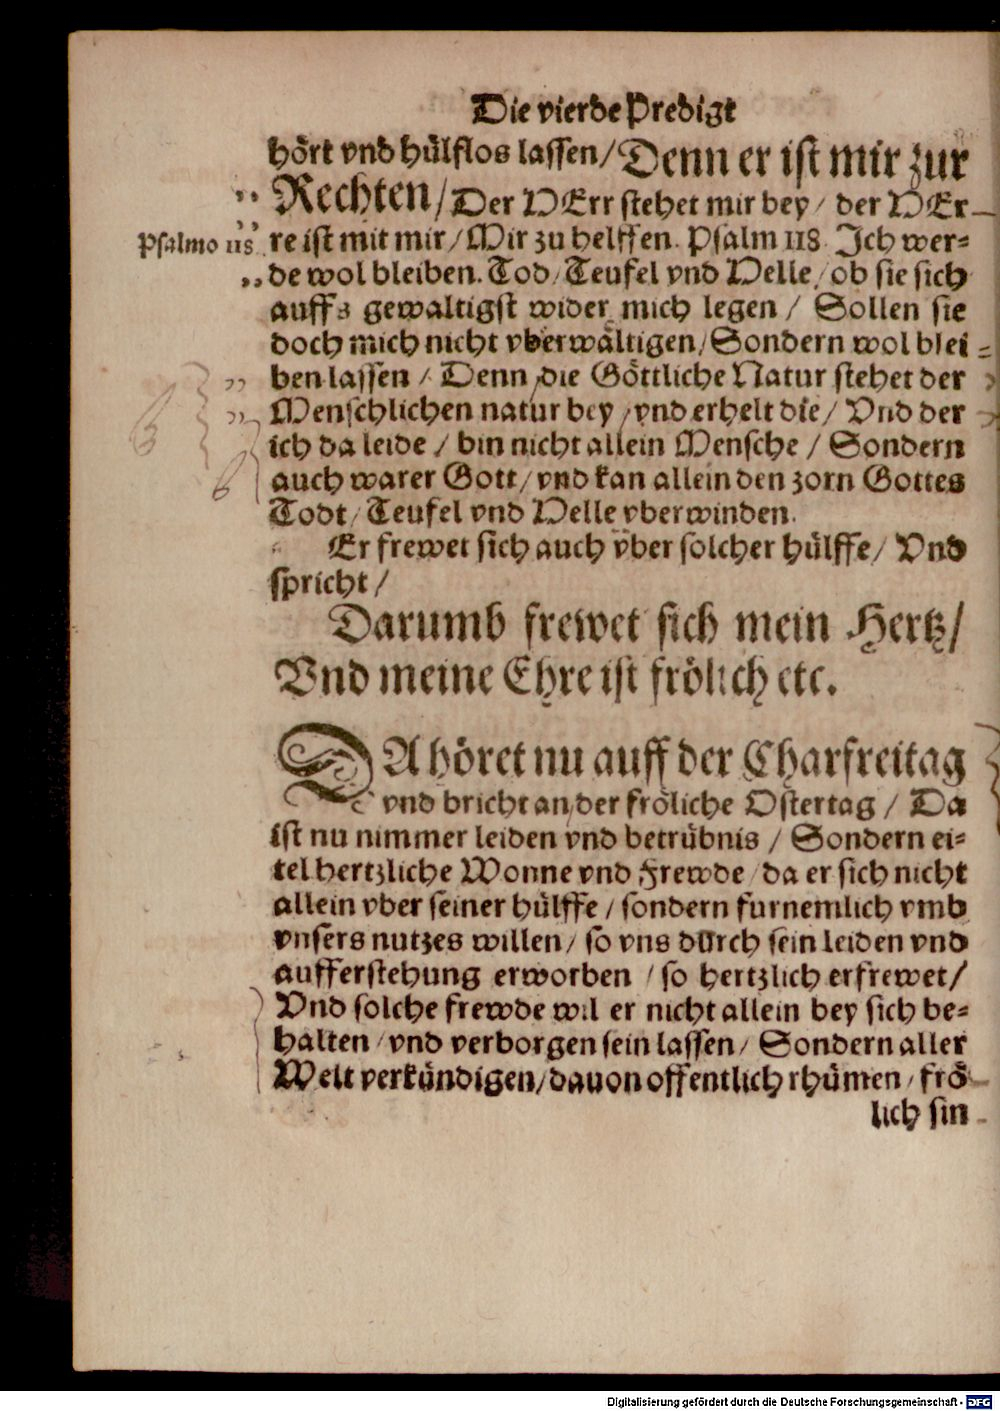 Die vierde Predigt
hört vnd hülflos lassen / Denn er ist mir zur
Rechten / Der HErr stehet mir bey / der HEr-
Psalmo 118. re ist mit mir / Mir zu helffen. Psalm 118. Ich wer-
de wol bleiben. Tod / Teufel vnd Helle / ob sie sich
auffs gewaltigst wider mich legen / Sollen sie
doch mich nicht vberwältigen / Sondern wol blei-
ben lassen / Denn die Göttliche Natur stehet der
Menschlichen natur bey / vnd erhelt die / Vnd der
ich da leide / bin nicht allein Mensche / Sondern
auch warer Gott / vnd kan allein den zorn Gottes
Todt / Teufel vnd Helle vberwinden.
Er frewet sich auch vber solcher hülffe / Vnd
spricht /
Darumb frewet sich mein Hertz /
Vnd meine Ehre ist frölich etc.
DA höret nu auff der Charfreitag
vnd bricht an der fröliche Ostertag / Da
ist nu nimmer leiden vnd betrübnis / Sondern ei-
tel hertzliche Wonne vnd Frewde / da er sich nicht
allein vber seiner hülffe / sondern furnemlich vmb
vnsers nutzes willen / so vns durch sein leiden vnd
aufferstehung erworben / so hertzlich erfrewet /
Vnd solche frewde wil er nicht allein bey sich be-
halten / vnd verborgen sein lassen / Sondern aller
Welt verkündigen / dauon offentlich rhümen / frö-
lich sin-
Digitalisierung gefördert durch die Deutsche Forschungsgemeinschaft - DFG